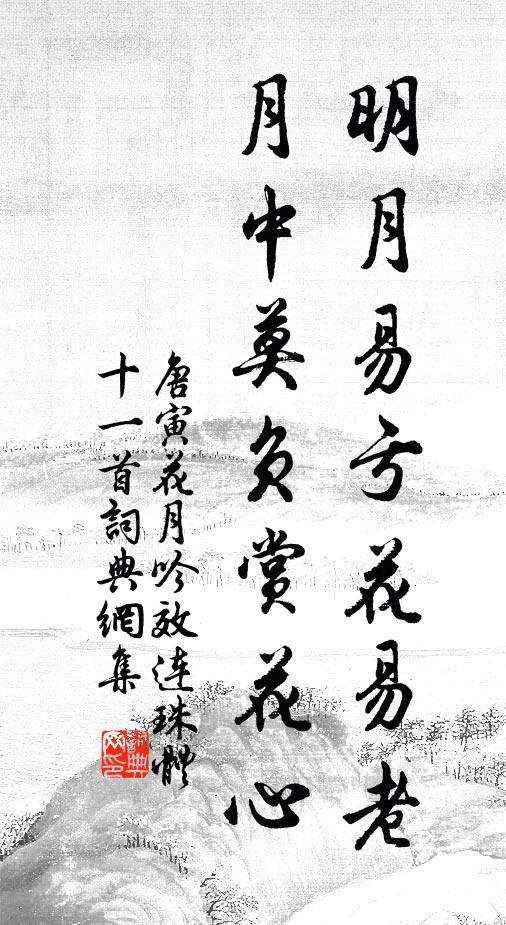 明月易亏花易老
月中莫负赏花心
唐寅花月吟效连珠體
十一首詞典網集